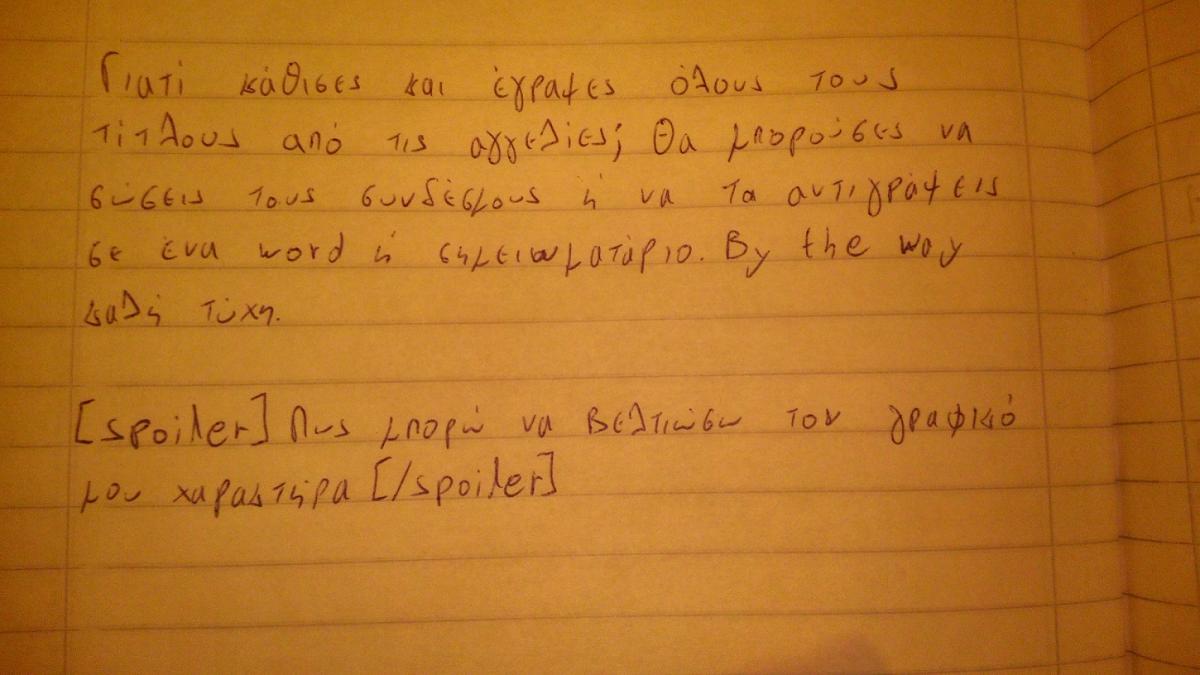 Γιατί κάθισες και έγραψες όλους τους
τίτλους από τις αγγελίες; Θα μπορούσες να
σώσεις τους συνδέσμους ή να τα αντιγράψεις
σε ένα word ή σημειωματάριο. By the way
καλή τύχη.
[spoiler] Πως μπορώ να βελτιώσω τον γραφικό
μου χαρακτήρα [/spoiler]